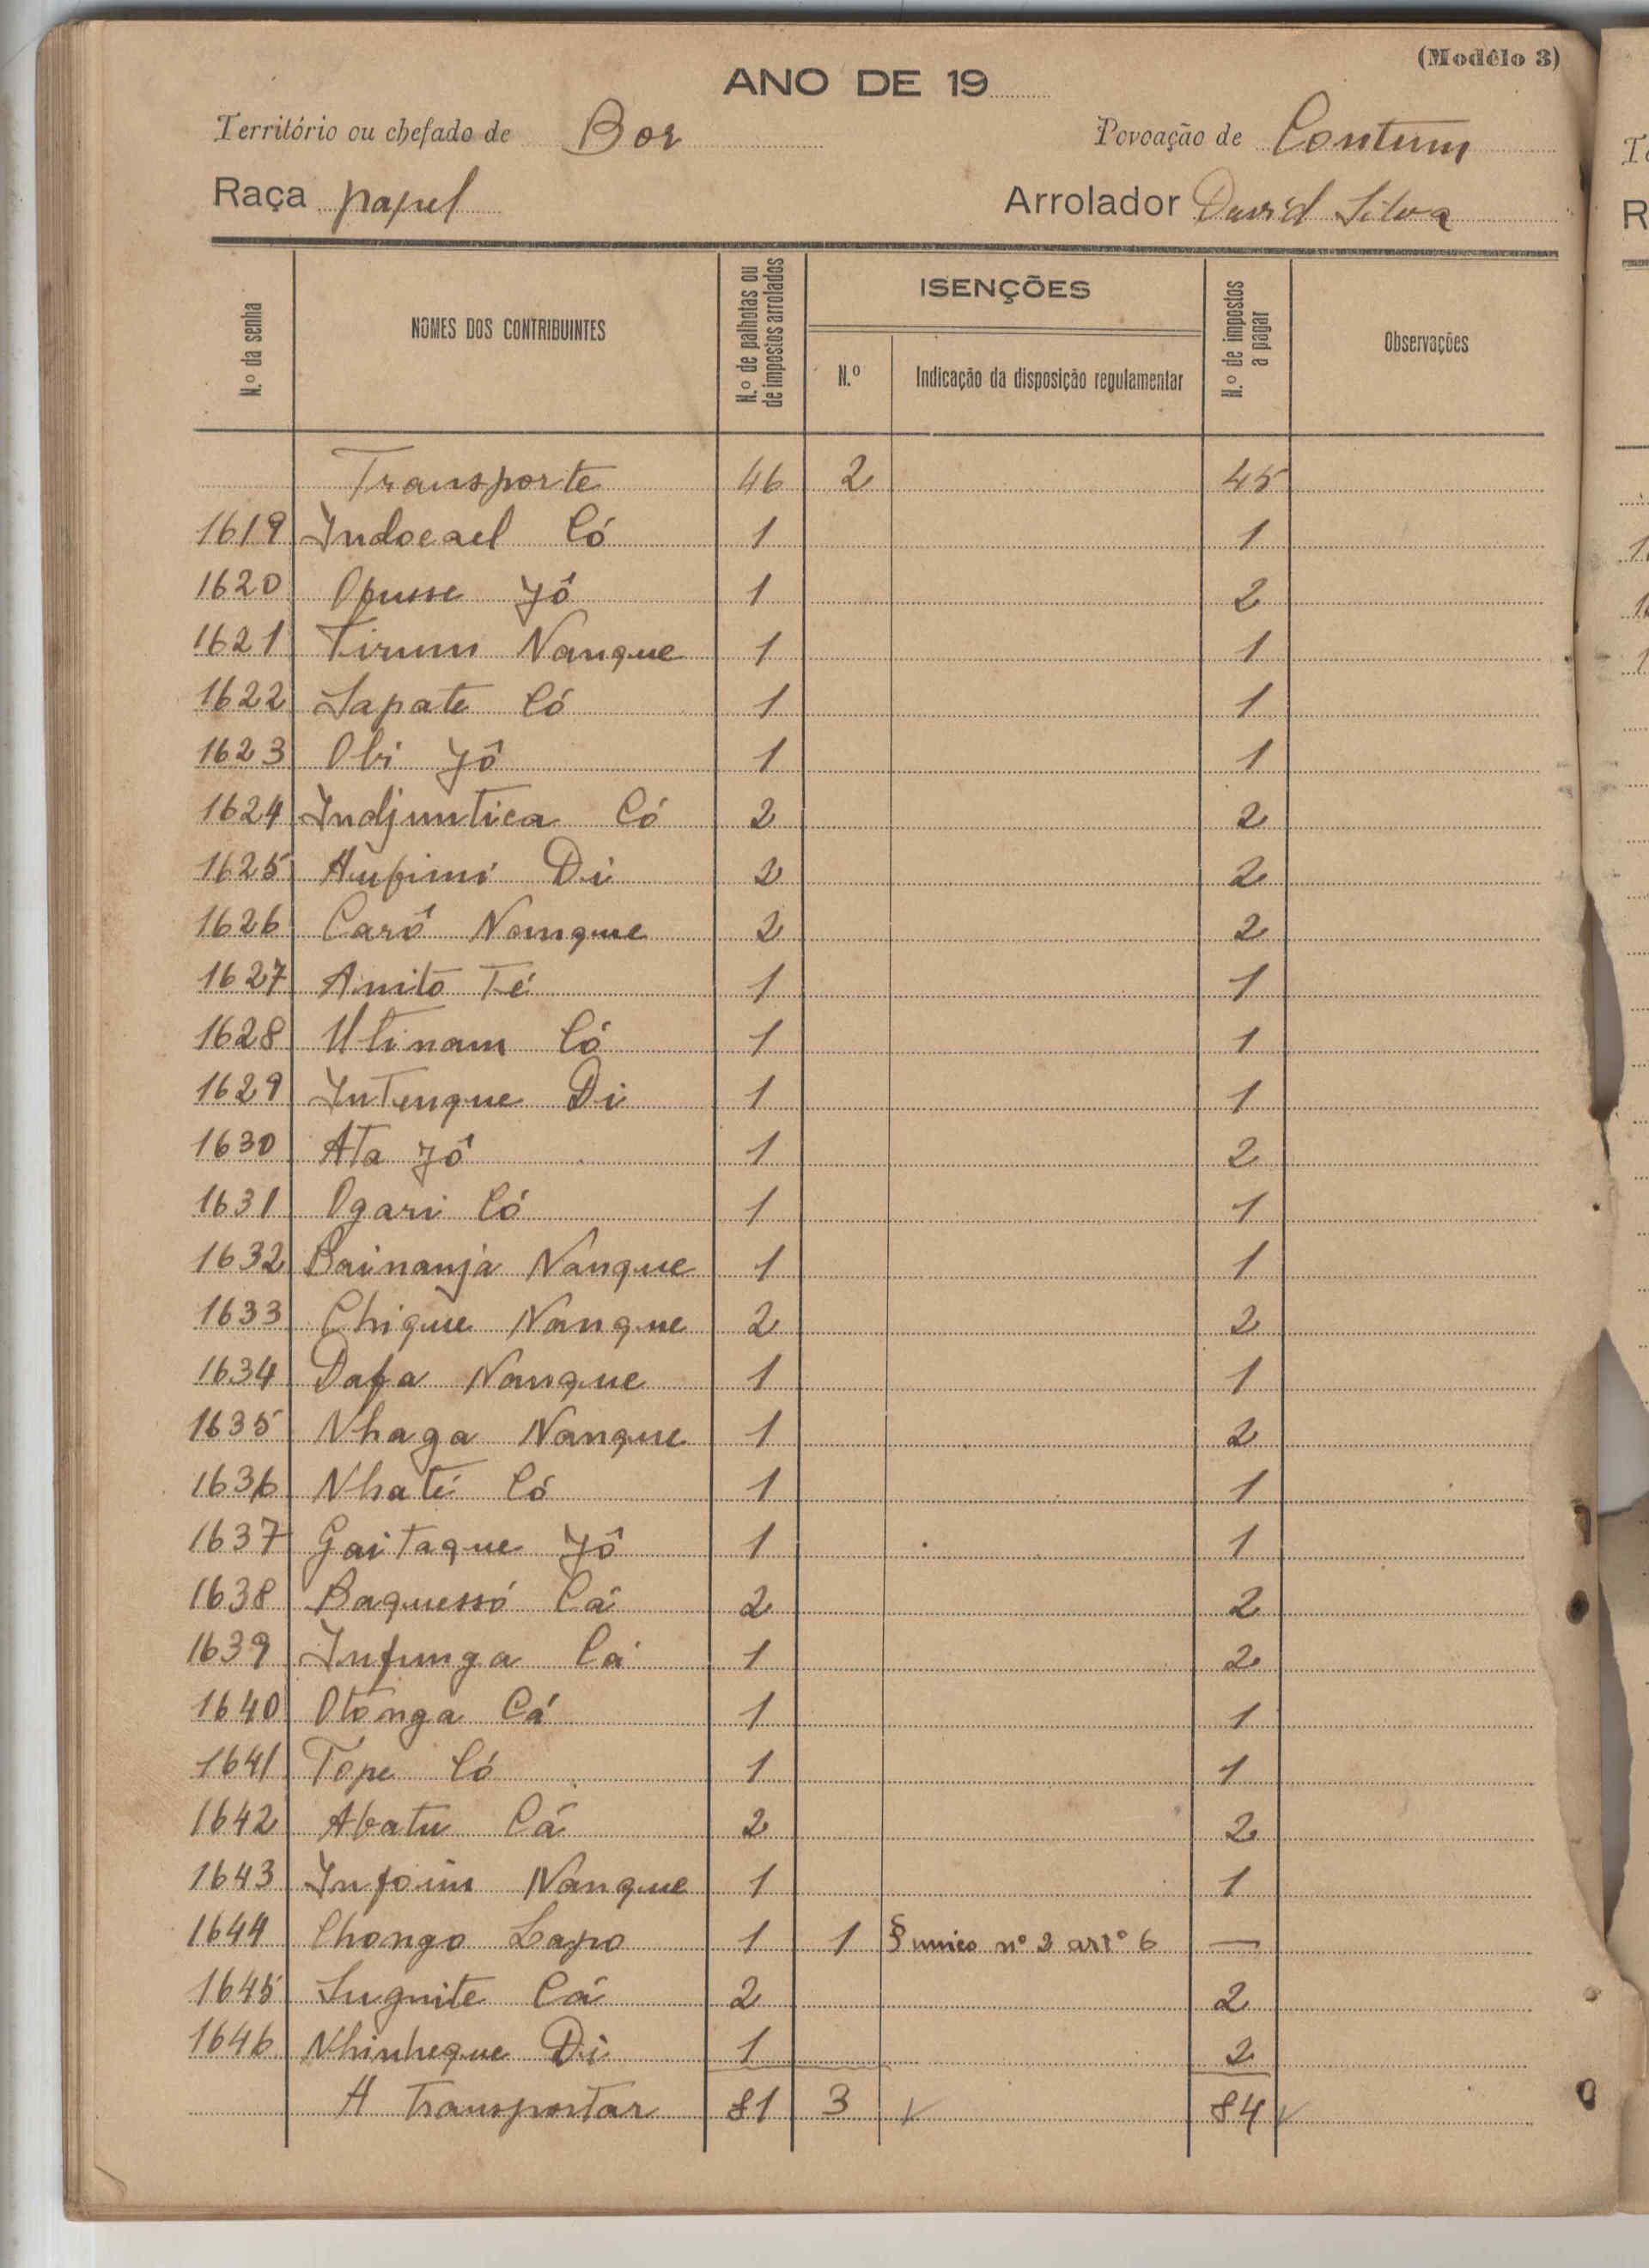 (Modêlo 3)
ANO DE 19
Território ou chefado de Bor Povoação de Contum
Raça papel Arrolador David Silva
N.º da senha NOMES DOS CONTRIBUINTES N.º de palhotas ou de impostos arrolados ISENÇÕES N.º Indicação da disposição regulamentar N.º de impostos a pagar Observações
Transporte 46 2 45
1619 Indocael Có 1 1
1620 Opusse Jô 1 2
1621 Tirum Nanque 1 1
1622 Sapate Có 1 1
1623 Obi Jô 1 1
1624 Indjuntica Có 2 2
1625 Di 2 2
1626 Carô Nanque 2 2
1627 Amito Té 1 1
1628 Utinam Có 1 1
1629 Intenque Di 1 1
1630 Ata Jô 1 2
1631 Ogari Có 1 1
1632 Bainanja Nanque 1 1
1633 Chique Nanque 2 2
1634 Dafa Nanque 1 1
1635 Nhaga Nanque 1 2
1636 Nhaté Có 1 1
1637 Gaitaque Jô 1 1
1638 Baquessó Cá 2 2
1639 Infunga Cá 1 2
1640 Otonga Cá 1 1
1641 Tope Có 1 1
1642 Abatu Cá 2 2
1643 Infoim Nanque 1 1
1644 Chongo Lapo 1 1 § unico nº 2 artº 6 —
1645 Sugnite Cá 2 2
1646 Nhinheque Di 1 2
A transportar 81 3 84